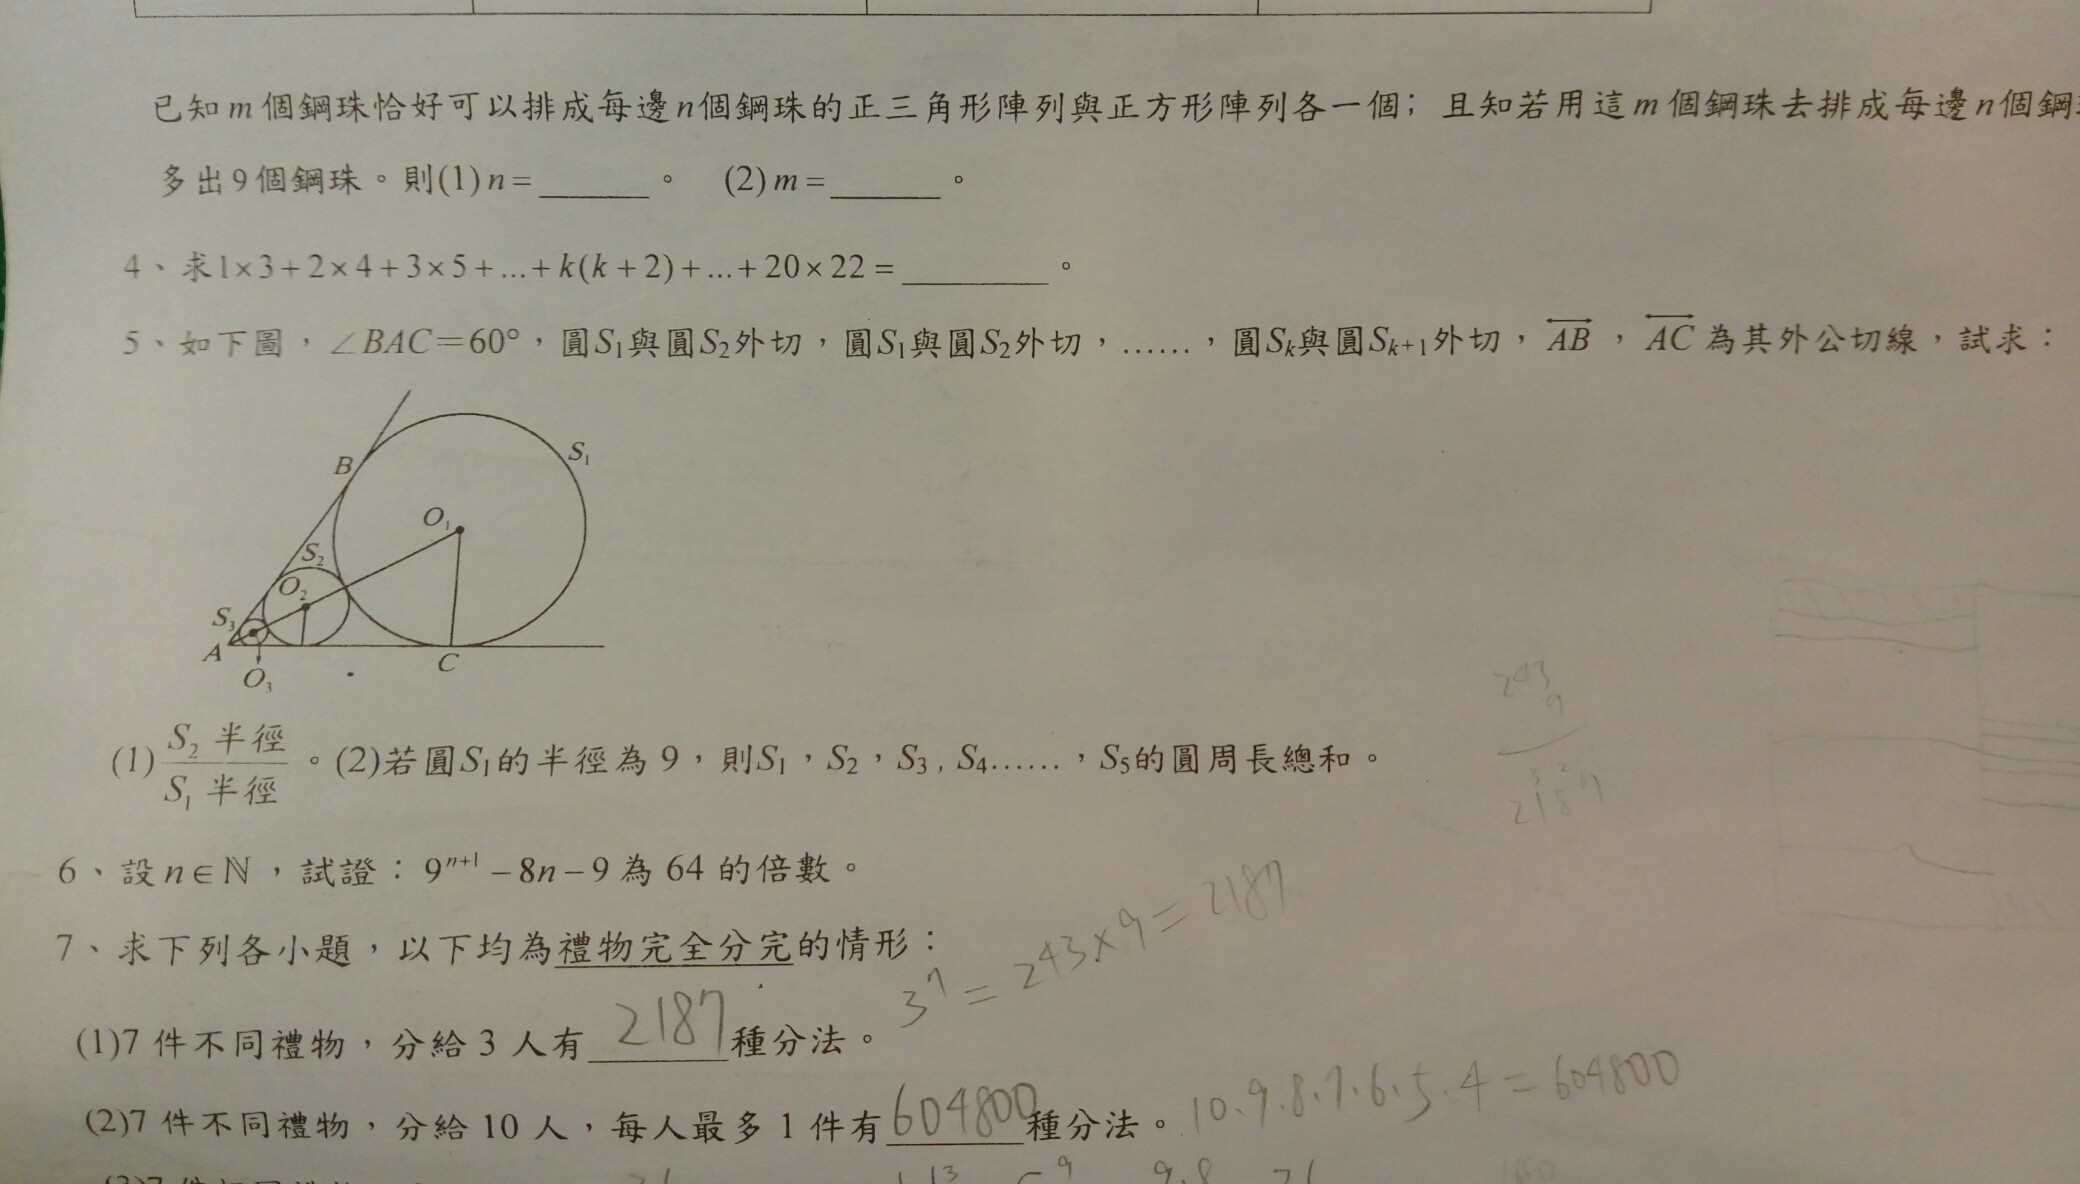 已知m個鋼珠恰好可以排成每邊n個鋼珠的正三角形陣列與正方形陣列各一個；且知若用這m個鋼珠去排成每邊n個鋼
多出9個鋼珠。則(1)n=______。 (2)m=______。
4、求1×3+2×4+3×5+...+k(k+2)+...+20×22=________。
5、如下圖，∠BAC=60°，圓S₁與圓S₂外切，圓S₁與圓S₂外切，……，圓Sₖ與圓Sₖ₊₁外切，AB，AC為其外公切線，試求：
B
S₁
O₁
S₂
O₂
S₃
A
C
O₃
(1) S₂半徑/S₁半徑。(2)若圓S₁的半徑為9，則S₁，S₂，S₃, S₄……，S₅的圓周長總和。
243
9
2187
6、設n∈ℕ，試證：9ⁿ⁺¹−8n−9為64的倍數。
7、求下列各小題，以下均為禮物完全分完的情形：
3⁷=243×9=2187
(1)7件不同禮物，分給3人有2187種分法。
(2)7件不同禮物，分給10人，每人最多1件有604800種分法。10.9.8.7.6.5.4=604800